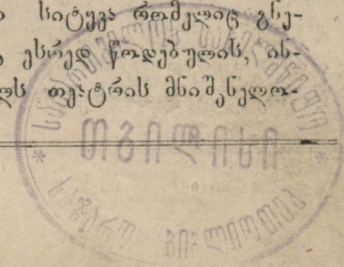 სიტყვა რომელიც გნე-
ესრედ წოდებულის, ის-
ლს თეატრის მნიშვნელო-
თბილისი
საჯარო